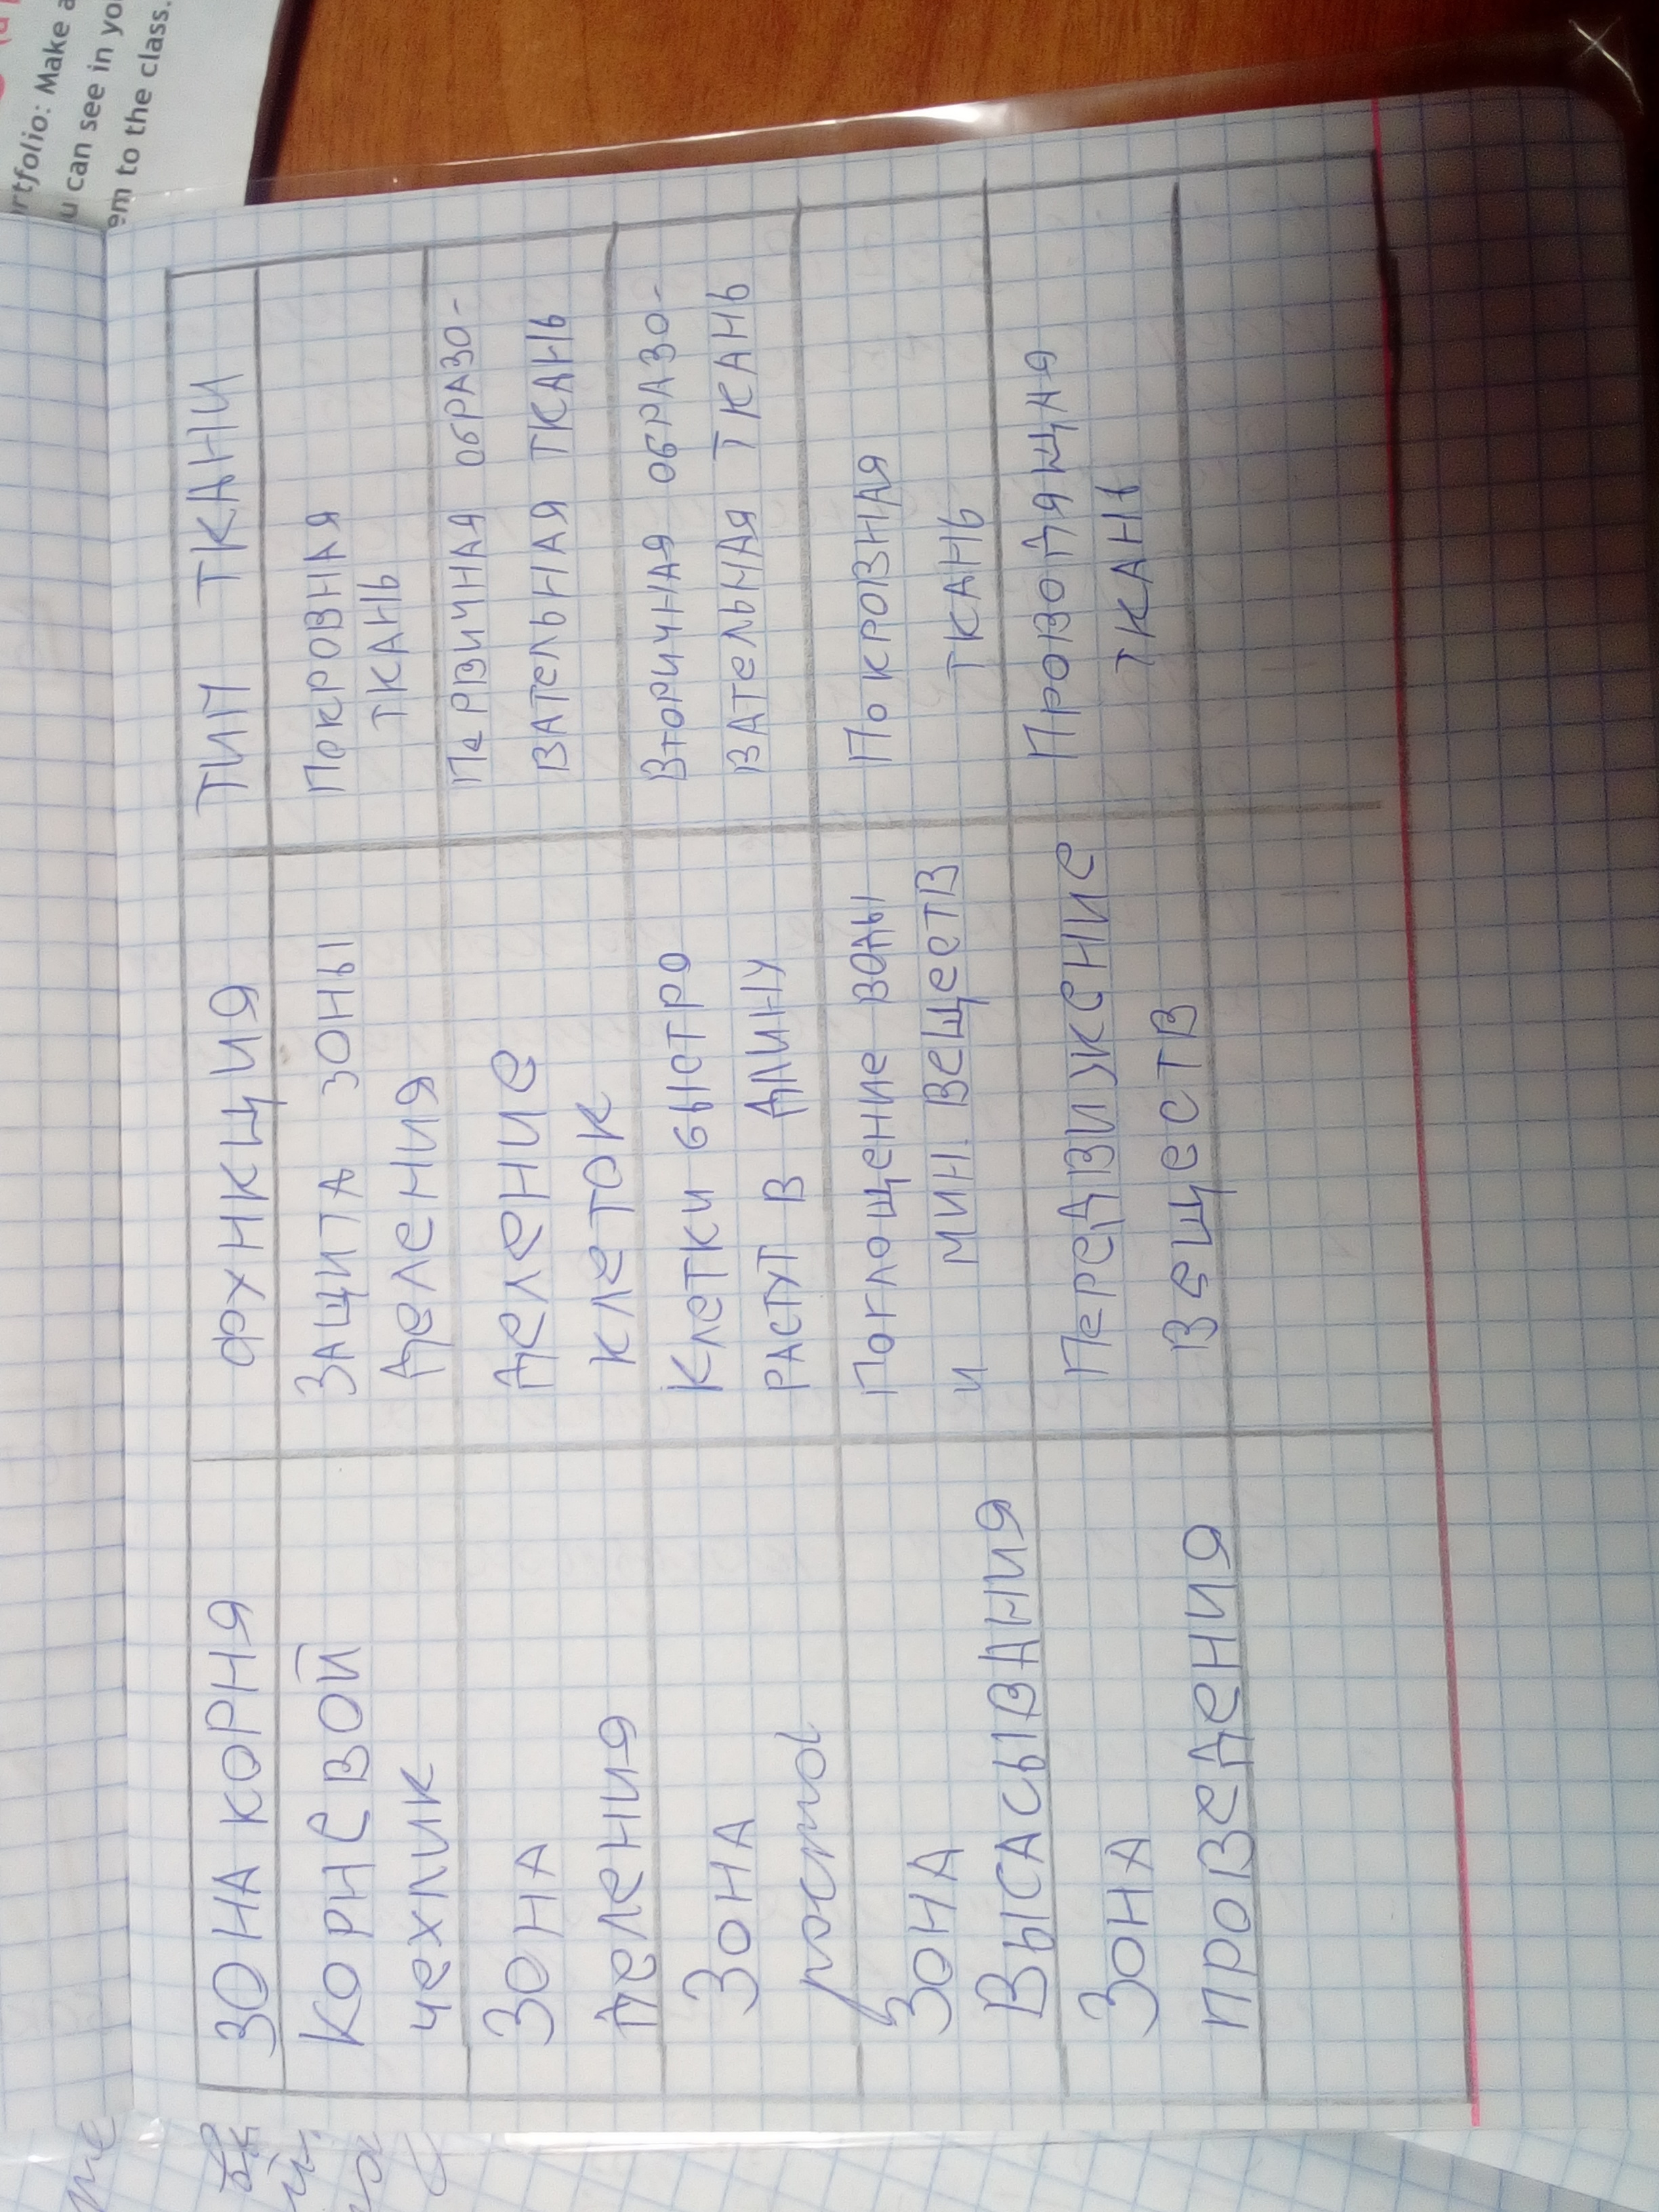 rtfolio: Make a
u can see in you
em to the class.
ЗОНА КОРНЯ
ФУНКЦИЯ
ТИП ТКАНИ
КОРНЕВОЙ
ЧЕХЛИК
ЗАЩИТА ЗОНЫ
ДЕЛЕНИЯ
ПОКРОВНАЯ
ТКАНЬ
ЗОНА
ДЕЛЕНИЯ
ДЕЛЕНИЕ
КЛЕТОК
ПЕРВИЧНАЯ ОБРАЗО-
ВАТЕЛЬНАЯ ТКАНЬ
ЗОНА
роста
КЛЕТКИ БЫСТРО
РАСТУТ В ДЛИНУ
ВТОРИЧНАЯ ОБРАЗО-
ВАТЕЛЬНАЯ ТКАНЬ
ЗОНА
ВЫСАСЫВАНИЯ
ПОГЛОЩЕНИЕ ВОДЫ
И МИН. ВЕЩЕСТВ
ПОКРОВНАЯ
ТКАНЬ
ЗОНА
ПРОВЕДЕНИЯ
ПЕРЕДВИЖЕНИЕ
ВЕЩЕСТВ
ПРОВОДЯЩАЯ
ТКАНЬ